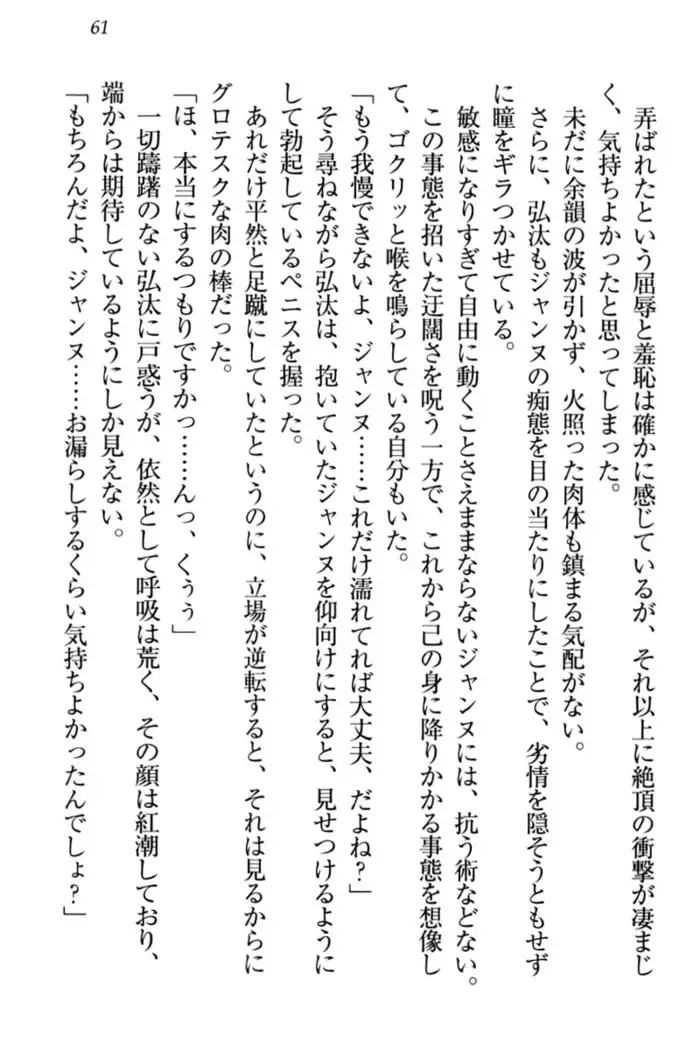 61
弄ばれたという屈辱と羞恥は確かに感じているが、それ以上に絶頂の衝撃が凄まじ
く、気持ちよかったと思ってしまった。
未だに余韻の波が引かず、火照った肉体も鎮まる気配がない。
さらに、弘汰もジャンヌの痴態を目の当たりにしたことで、劣情を隠そうともせず
に瞳をギラつかせている。
敏感になりすぎて自由に動くことさえままならないジャンヌには、抗う術などない。
この事態を招いた迂闊さを呪う一方で、これから己の身に降りかかる事態を想像し
て、ゴクリッと喉を鳴らしている自分もいた。
「もう我慢できないよ、ジャンヌ……これだけ濡れてれば大丈夫、だよね？」
そう尋ねながら弘汰は、抱いていたジャンヌを仰向けにすると、見せつけるように
して勃起しているペニスを握った。
あれだけ平然と足蹴にしていたというのに、立場が逆転すると、それは見るからに
グロテスクな肉の棒だった。
「ほ、本当にするつもりですかっ……んっ、くぅぅ」
一切躊躇のない弘汰に戸惑うが、依然として呼吸は荒く、その顔は紅潮しており、
端からは期待しているようにしか見えない。
「もちろんだよ、ジャンヌ……お漏らしするくらい気持ちよかったんでしょ？」